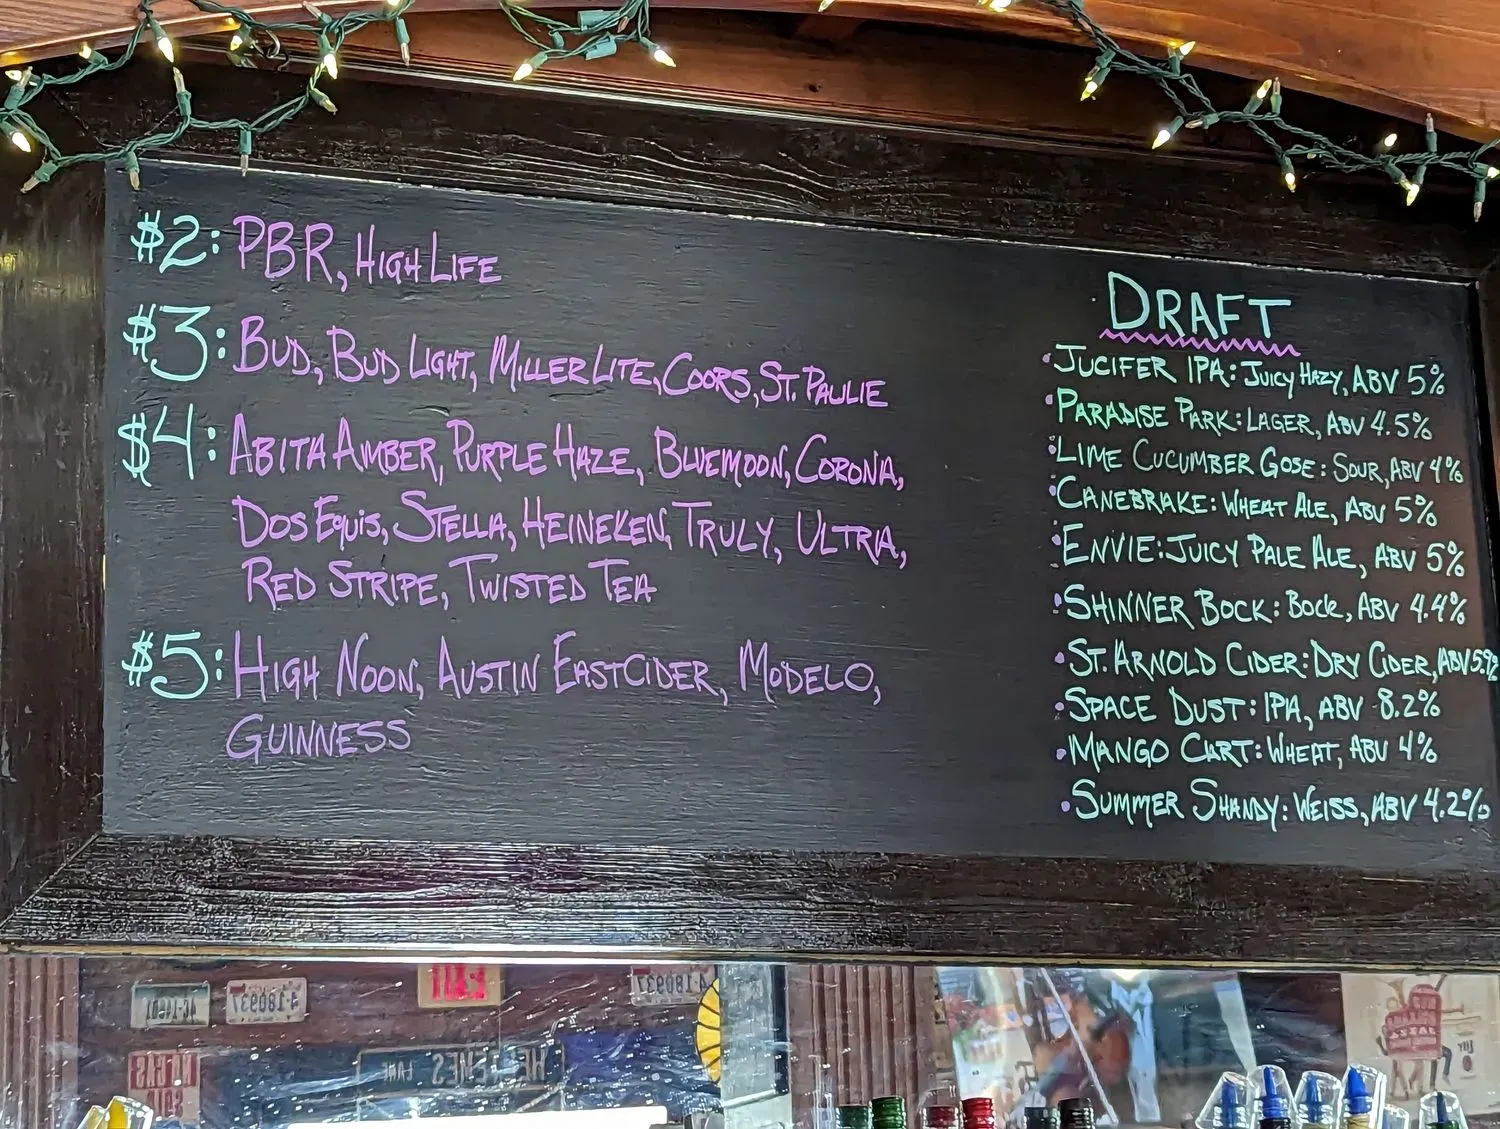 $2: PBR, HIGH LIFE
$3: BUD, BUD LIGHT, MILLER LITE, COORS, ST. PAULIE
$4: ABITA AMBER, PURPLE HAZE, BLUEMOON, CORONA,
DOS EQUIS, STELLA, HEINEKEN, TRULY, ULTRA,
RED STRIPE, TWISTED TEA
$5: HIGH NOON, AUSTIN EASTCIDER, MODELO,
GUINNESS
DRAFT
• JUCIFER IPA: JUICY HAZY, ABV 5%
• PARADISE PARK: LAGER, ABV 4.5%
• LIME CUCUMBER GOSE: SOUR, ABV 4%
• CANEBRAKE: WHEAT ALE, ABV 5%
• ENVIE: JUICY PALE ALE, ABV 5%
• SHINNER BOCK: BOCK, ABV 4.4%
• ST. ARNOLD CIDER: DRY CIDER, ABV 5.9%
• SPACE DUST: IPA, ABV 8.2%
• MANGO CART: WHEAT, ABV 4%
• SUMMER SHANDY: WEISS, ABV 4.2%
EXIT